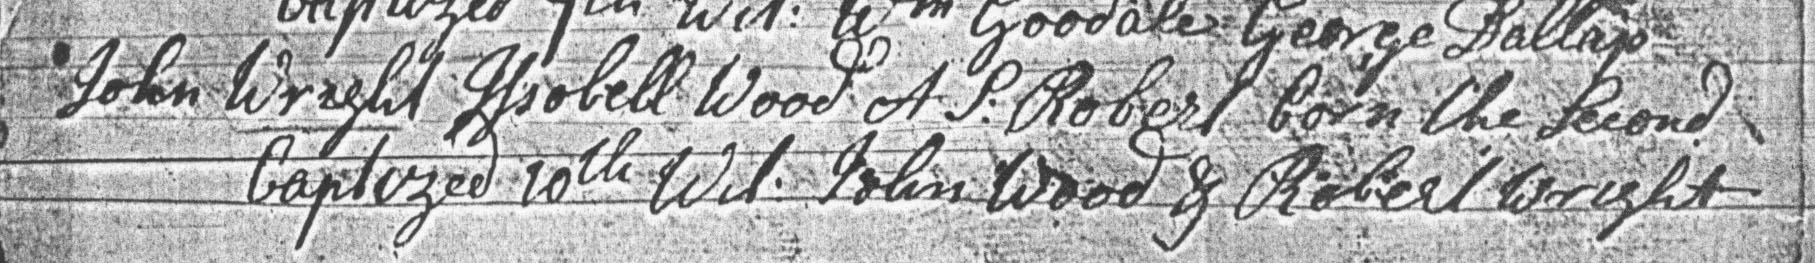 baptized 9th Wit: Wm Goodale George Dallas
John Wright Issobell Wood A S. Robert born the Second
baptized 10th Wit. John Wood & Robert Wright